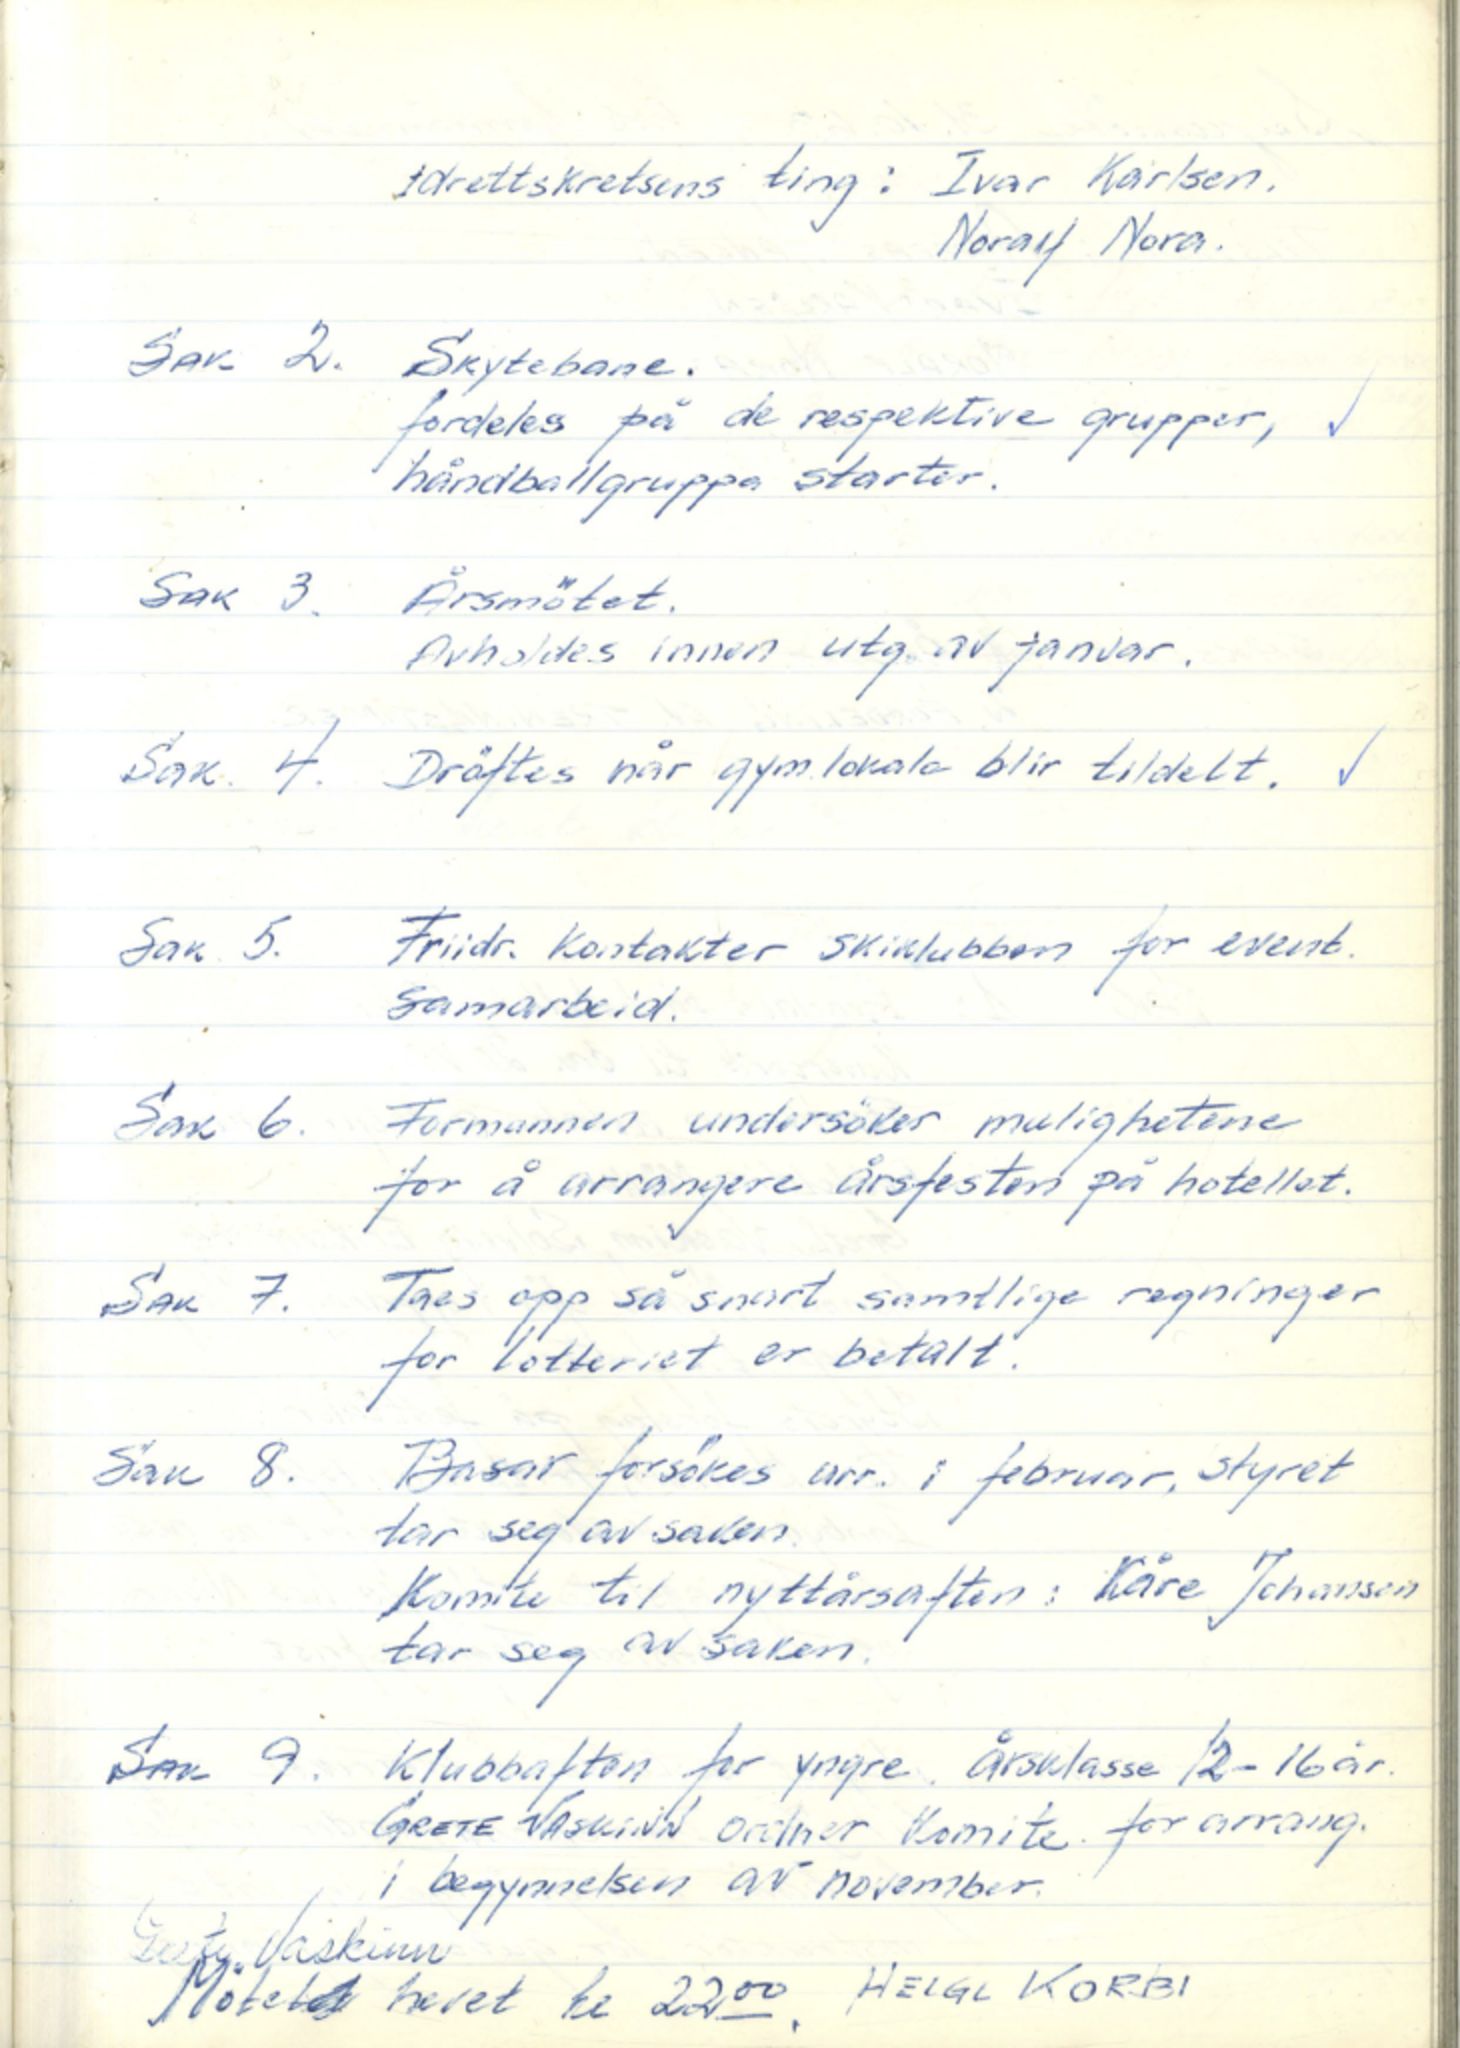 Idrettskretsens ting: Ivar Karlsen.
Noralf Nora.
Sak 2. Skytebane.
fordeles på de respektive grupper,
håndballgruppa starter.
Sak 3. Årsmötet.
Avholdes innen utg. av januar.
Sak 4. Dröftes når gym.lokale blir tildelt.
Sak 5. Friidr. kontakter skiklubben for event.
samarbeid.
Sak 6. Formannen undersöker mulighetene
for å arrangere årsfesten på hotellet.
Sak 7. Taes opp så snart samtlige regninger
for lotteriet er betalt.
Sak 8. Basar forsökes arr. i februar, styret
tar seg av saken.
Komite til nyttårsaften: Kåre Johansen
tar seg av saken.
Sak 9. Klubbaften for yngre. årsklasse 12-16 år.
GRETE VASKINN ordner komite for arrang.
i begynnelsen av november.
Vaskinn
Mötet hevet kl 22⁰⁰. HELGE KORBI